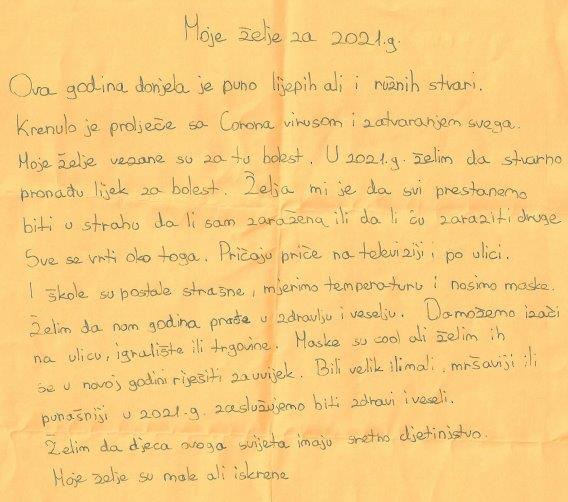 Moje želje za 2021.g.
Ova godina donjela je puno lijepih ali i ružnih stvari.
Krenulo je proljeće sa Corona virusom i zatvaranjem svega.
Moje želje vezane su za tu bolest. U 2021.g. želim da stvarno
pronađu lijek za bolest. Želja mi je da svi prestanemo
biti u strahu da li sam zaražena ili da li ću zaraziti druge
Sve se vrti oko toga. Pričaju priče na televiziji i po ulici.
I škole su postale strašne, mjerimo temperaturu i nosimo maske.
Želim da nam godina prođe u zdravlju i veselju. Da možemo izaći
na ulicu, igralište ili trgovine. Maske su cool ali želim ih
se u novoj godini riješiti zauvijek. Bili velik ili mali, mršaviji ili
punašniji u 2021.g. zaslužujemo biti zdravi i veseli.
Želim da djeca ovoga svijeta imaju sretno djetinjstvo.
Moje želje su male ali iskrene